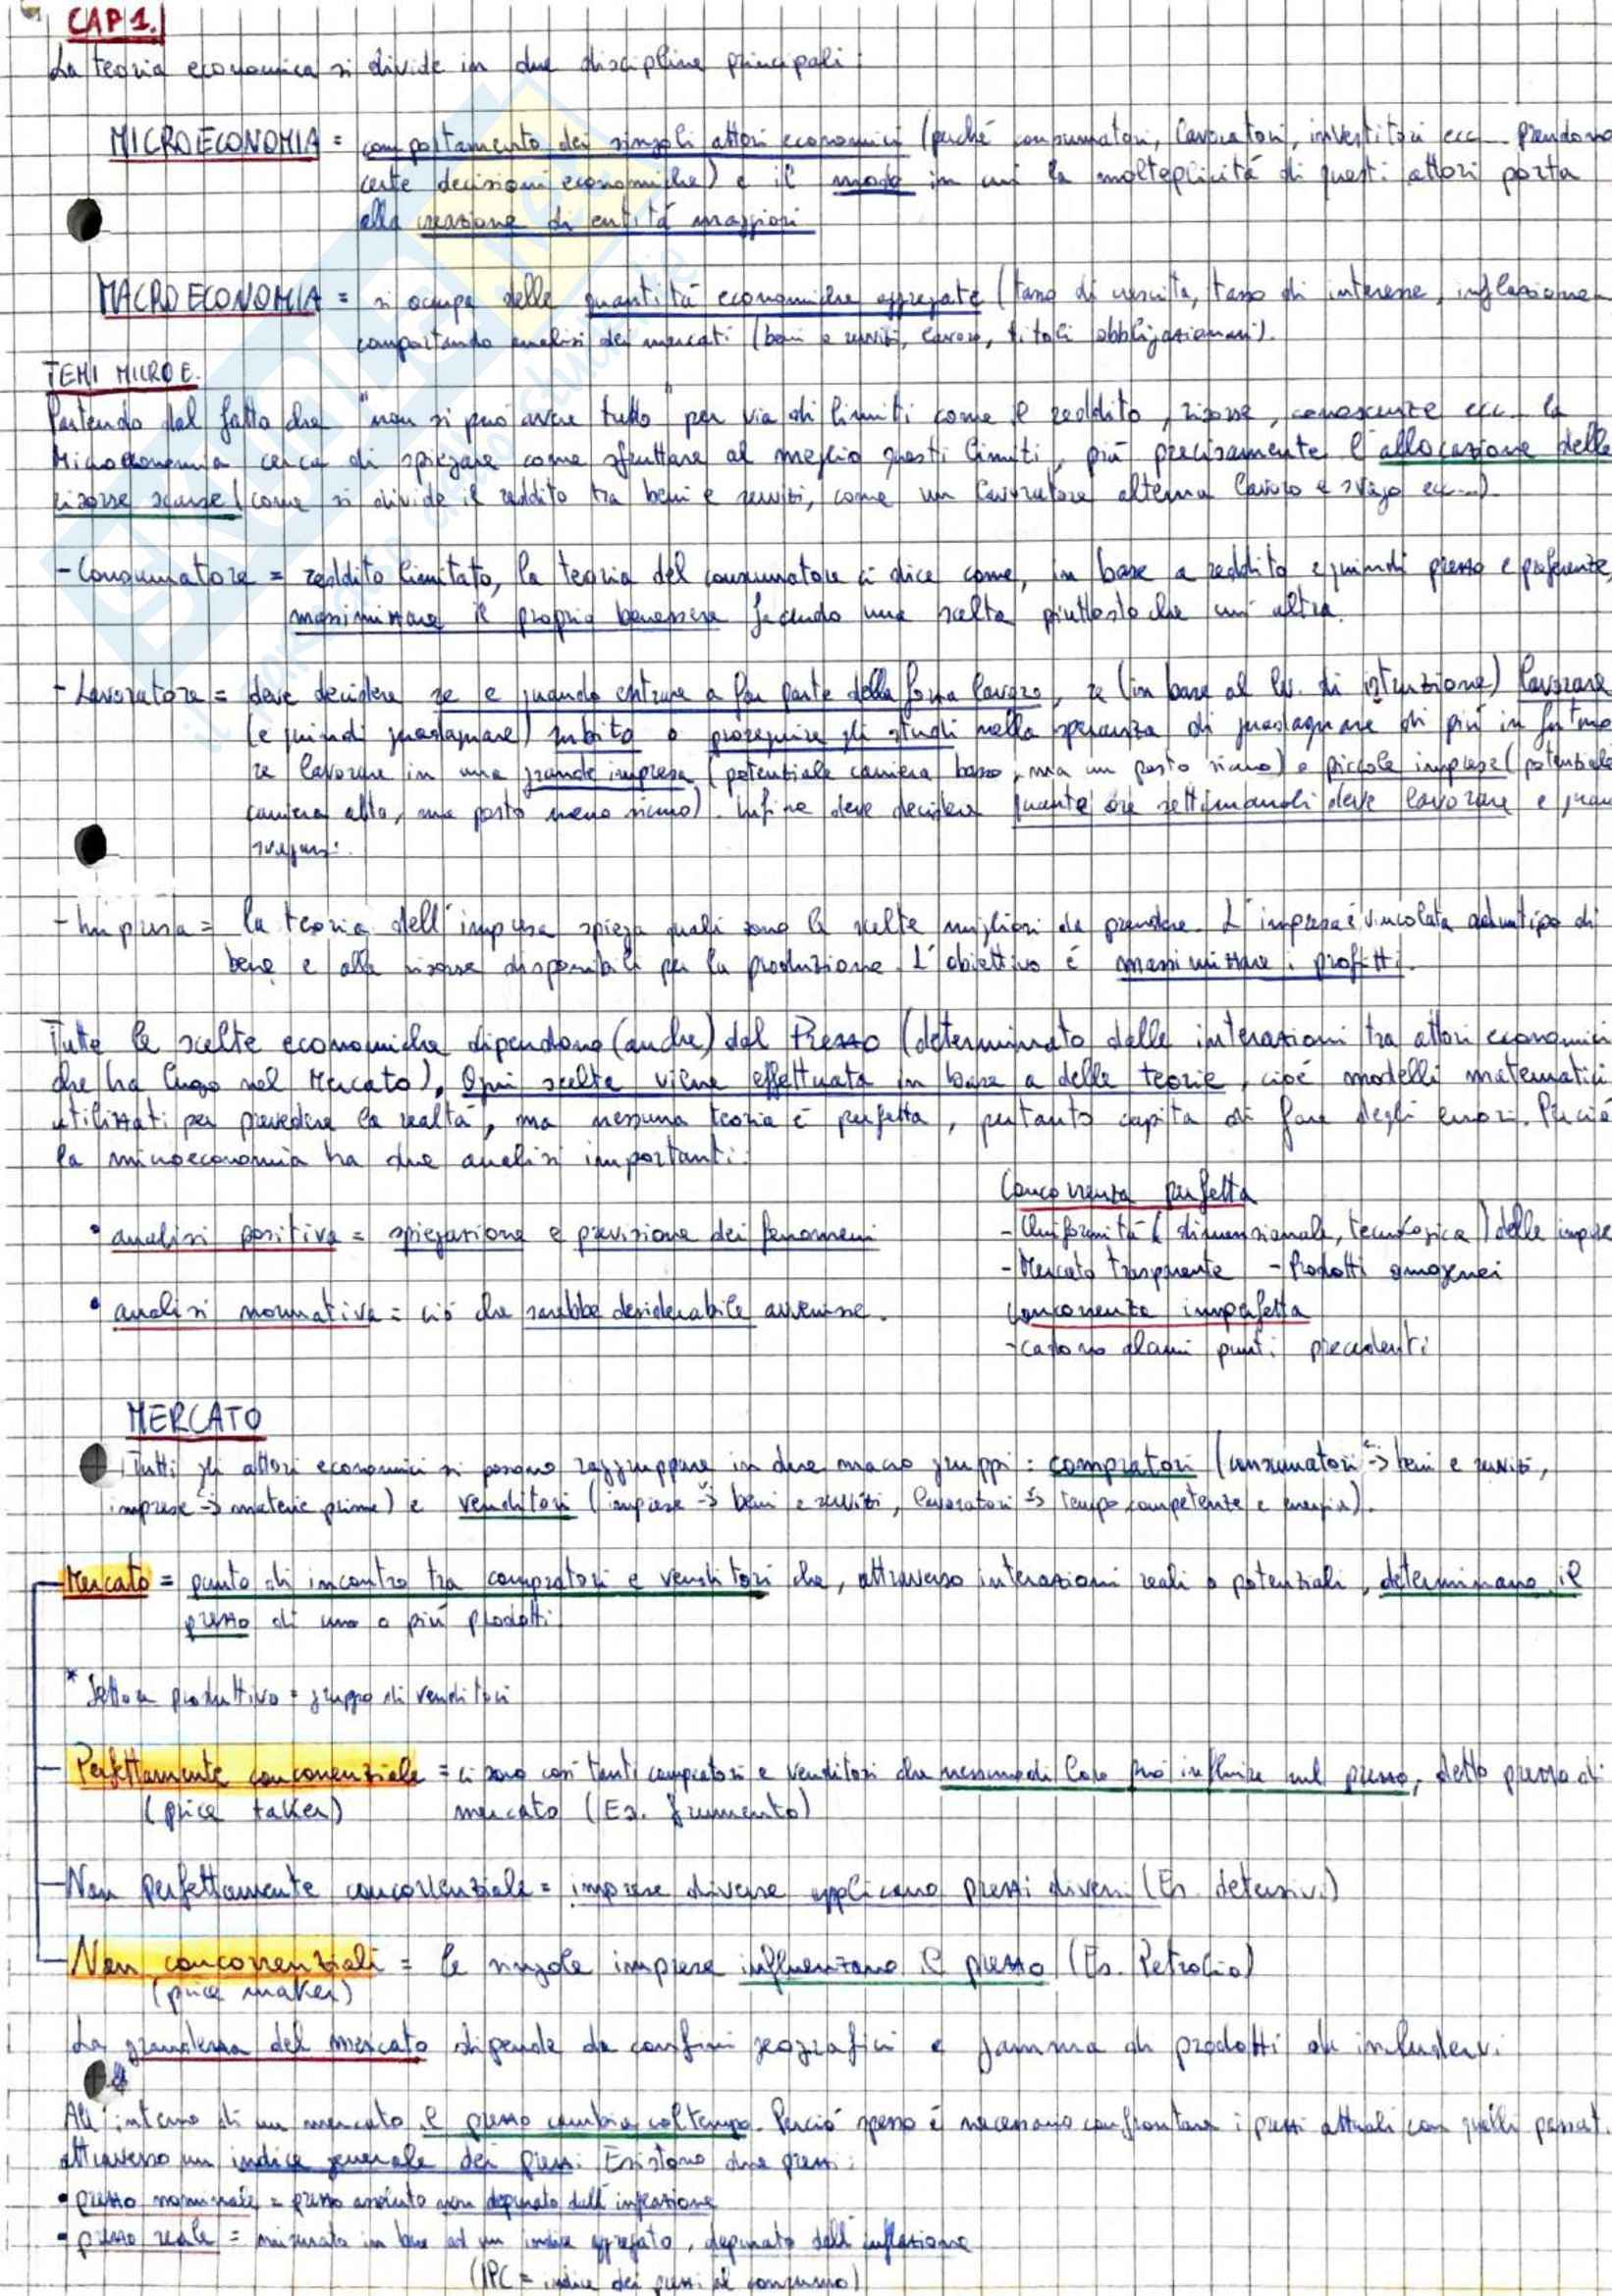 CAP 1.
La teoria economica si divide in due discipline principali:
MICROECONOMIA = comportamento dei singoli attori economici (perché consumatori, lavoratori, investitori ecc... prendono
certe decisioni economiche) e il modo in cui la molteplicità di questi attori porta
alla creazione di entità maggiori
MACROECONOMIA = si occupa delle quantità economiche aggregate (tasso di crescita, tasso di interesse, inflazione
comportando analisi dei mercati (beni e servizi, lavoro, titoli obbligazionari).
TEMI MICROE.
Partendo dal fatto che "non si può avere tutto" per via di limiti come il reddito, risorse, conoscenze ecc... la
Microeconomia cerca di spiegare come sfruttare al meglio questi limiti, più precisamente l'allocazione delle
risorse scarse (come si divide il reddito tra beni e servizi, come un lavoratore alterna lavoro e svago ecc...).
- Consumatore = reddito limitato, la teoria del consumatore ci dice come, in base a reddito e quindi prezzo e preferenze,
massimizzare il proprio benessere facendo una scelta piuttosto che un'altra.
- Lavoratore = deve decidere se e quando entrare a far parte della forza lavoro, se (in base al liv. di istruzione) lavorare
(e quindi guadagnare) subito o proseguire gli studi nella speranza di guadagnare di più in futuro
se lavorare in una grande impresa (potenziale carriera basso, ma un posto sicuro) o piccole imprese (potenziale
carriera alto, ma posto meno sicuro). Infine deve decidere quante ore settimanali deve lavorare e
svagarsi.
- Impresa = la teoria dell'impresa spiega quali sono le scelte migliori da prendere. L'impresa è vincolata ad un tipo di
bene e alle risorse disponibili per la produzione. L'obiettivo è massimizzare i profitti.
Tutte le scelte economiche dipendono (anche) dal Prezzo (determinato dalle interazioni tra attori economici
che ha luogo nel Mercato). Ogni scelta viene effettuata in base a delle teorie, cioè modelli matematici
utilizzati per prevedere la realtà, ma nessuna teoria è perfetta, pertanto capita di fare degli errori. Perciò
la microeconomia ha due analisi importanti:
• analisi positiva = spiegazione e previsione dei fenomeni
• analisi normativa = ciò che sarebbe desiderabile avvenisse.
Concorrenza perfetta
- Uniformità (dimensionale, tecnologica) delle imprese
- Mercato trasparente - Prodotti omogenei
Concorrenza imperfetta
- cadono alcuni punti precedenti
MERCATO
Tutti gli attori economici si possono raggruppare in due macro gruppi: compratori (consumatori → beni e servizi,
imprese → materie prime) e venditori (imprese → beni e servizi, lavoratori → tempo competenze e energia).
Mercato = punto di incontro tra compratori e venditori che, attraverso interazioni reali o potenziali, determinano il
prezzo di uno o più prodotti
* Settore produttivo = gruppo di venditori
Perfettamente concorrenziale = ci sono così tanti compratori e venditori che nessuno di loro può influire sul prezzo, detto prezzo di
(price taker) mercato (Es. frumento)
Non perfettamente concorrenziale = imprese diverse applicano prezzi diversi (Es. detersivi)
Non concorrenziali = le singole imprese influenzano il prezzo (Es. Petrolio)
(price maker)
La grandezza del mercato dipende da confini geografici e gamma di prodotti da includervi
All'interno di un mercato il prezzo cambia col tempo. Perciò spesso è necessario confrontare i prezzi attuali con quelli passati
attraverso un indice generale dei prezzi. Esistono due prezzi:
• prezzo nominale = prezzo assoluto non depurato dall'inflazione
• prezzo reale = misurato in base ad un indice aggregato, depurato dall'inflazione
(IPC = indice dei prezzi al consumo)